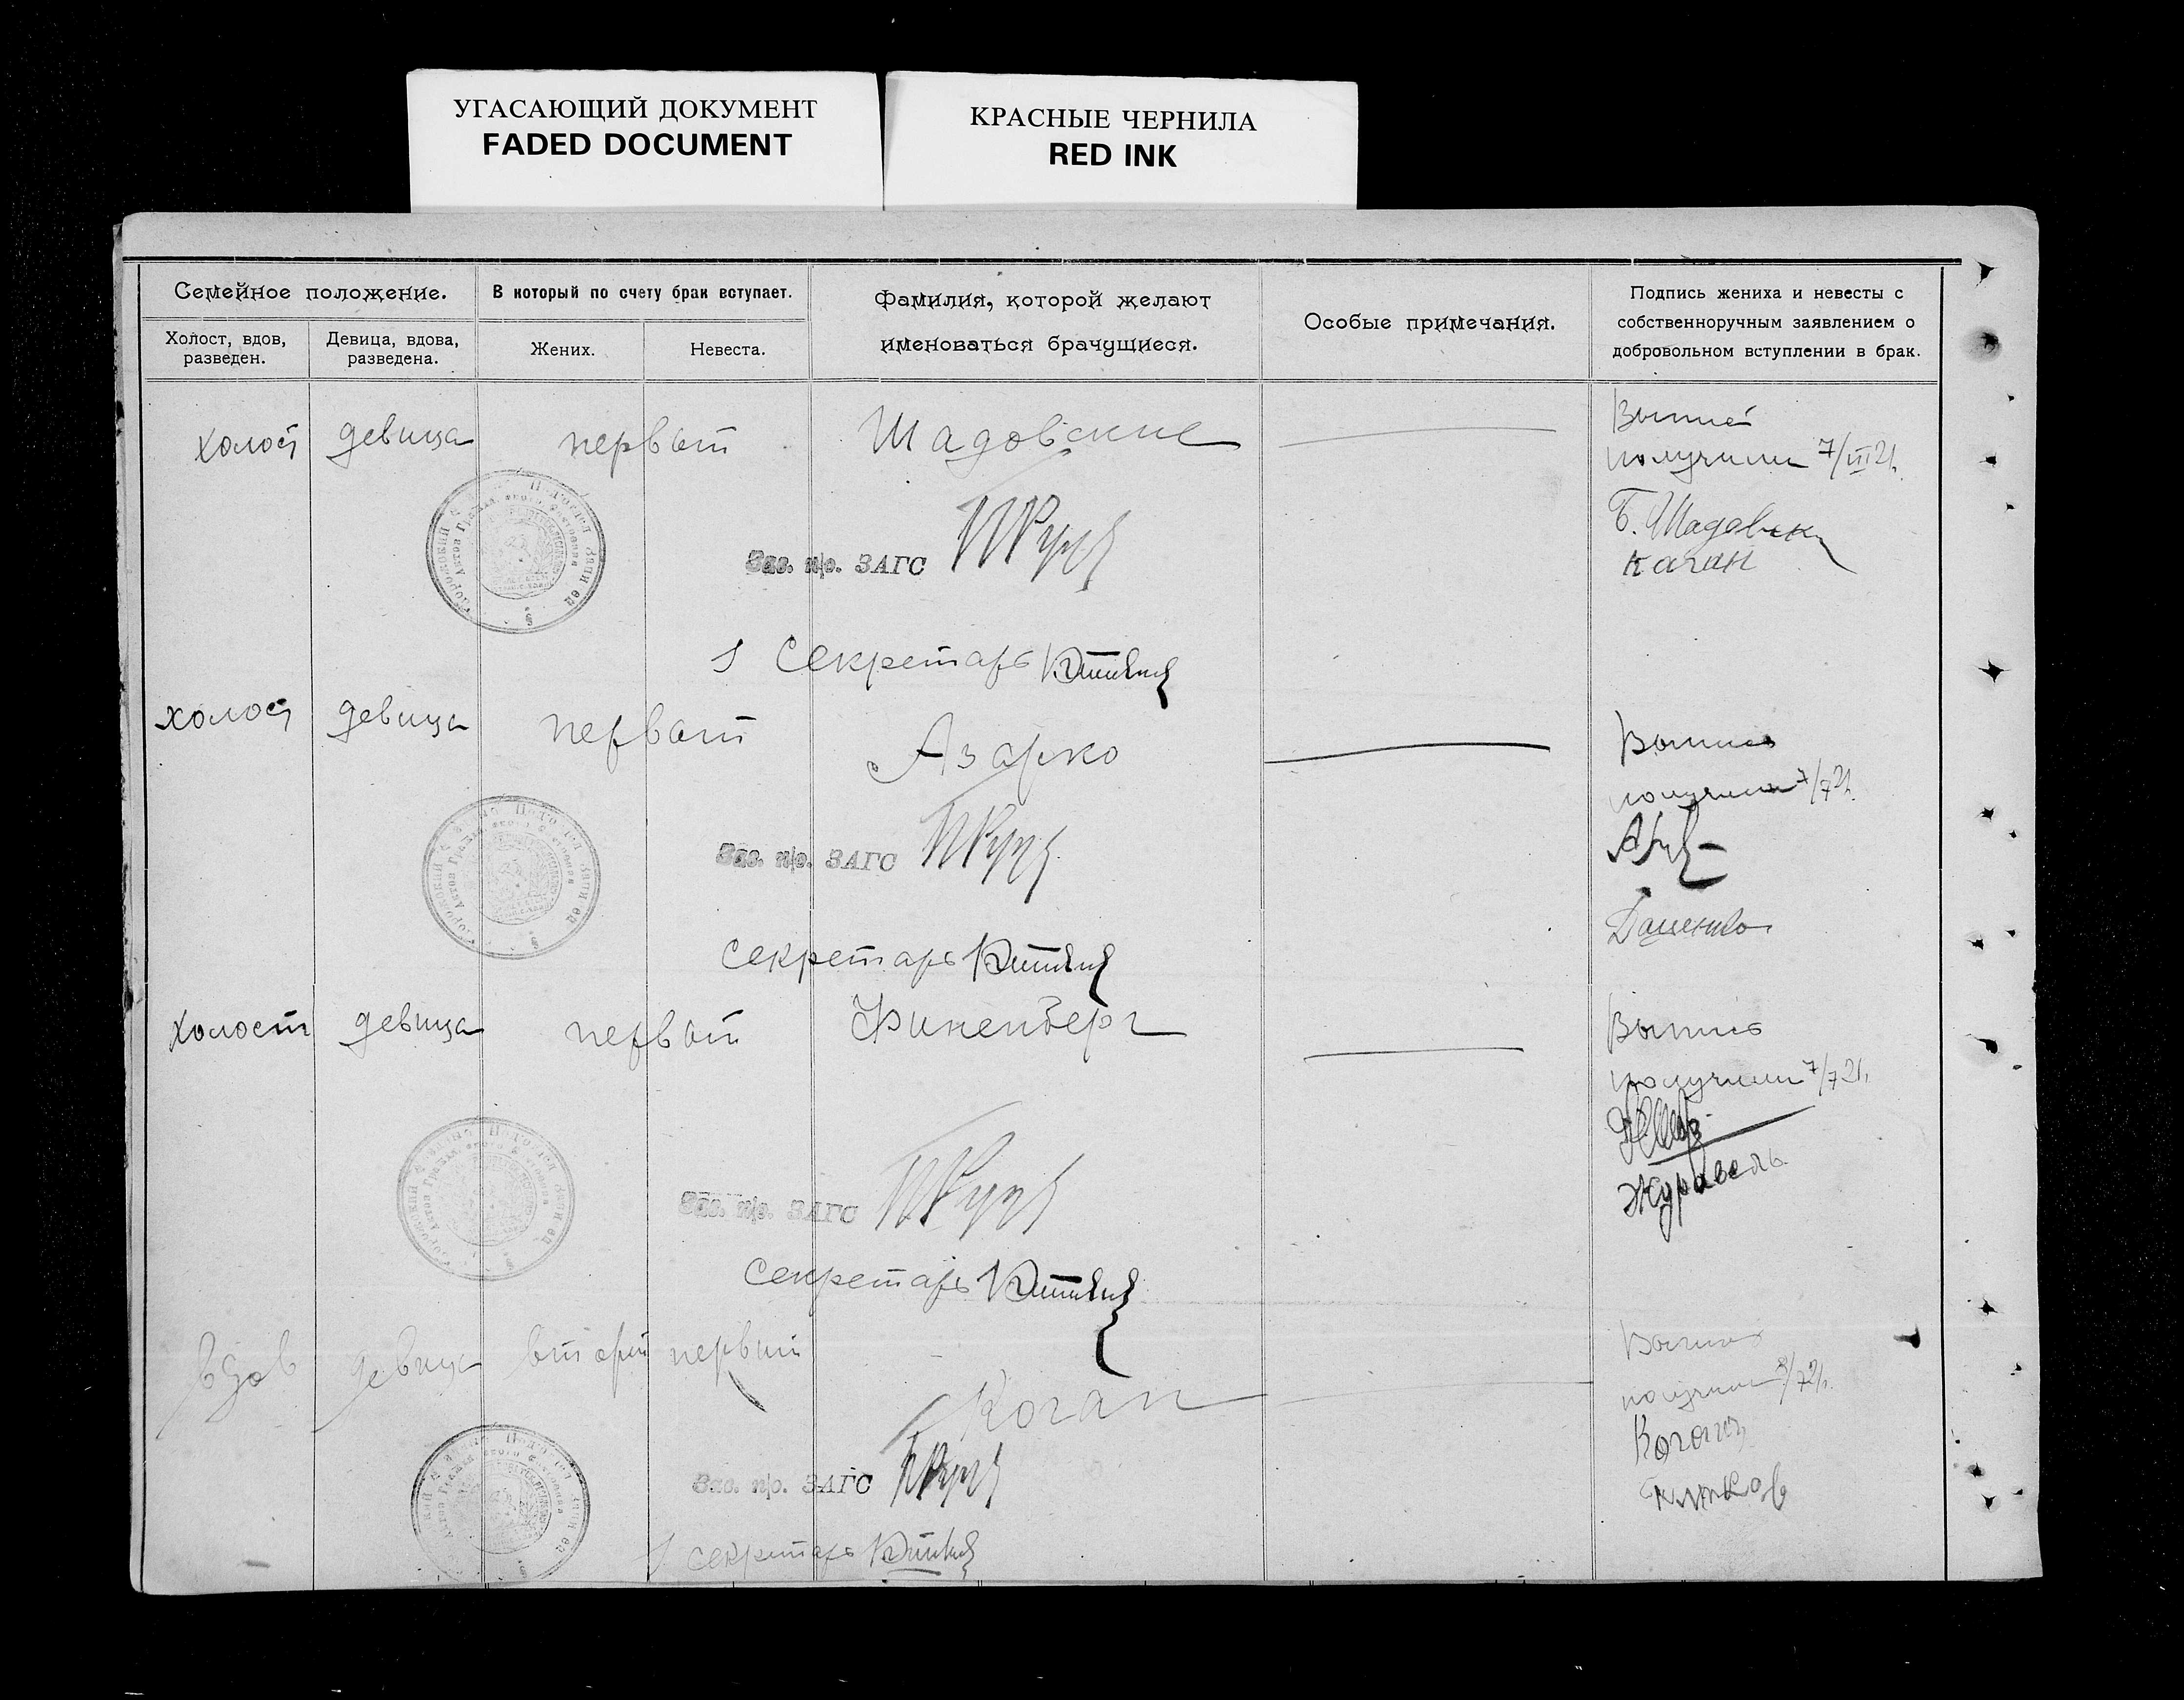 УГАСАЮЩИЙ ДОКУМЕНТ
FADED DOCUMENT
КРАСНЫЕ ЧЕРНИЛА
RED INK
Семейное положение.
Холост, вдов,
разведен.
Девица, вдова,
разведена.
В который по счету брак вступает.
Жених.
Невеста.
Фамилия, которой желают
именоваться брачущиеся.
Особые примечания.
Подпись жениха и невесты с
собственноручным заявлением о
добровольном вступлении в брак.
холост девица первый Шадовские
Выпись
получили 7/VII 21.
Б. Шадовск
Каган
Зав. п/о. ЗАГС
Секретарь
холост девица первый Азарко
Выпись
получили 7/7 21.
Даценко
Зав. п/о. ЗАГС
Секретарь
холост девица первый Финенберг
Выпись
получили 7/7 21.
Журавель
Зав. п/о. ЗАГС
Секретарь
вдов девица вторый первый
Коган
Выпись
получили 8/7 21.
Коган
Зав. п/о. ЗАГС
Секретарь